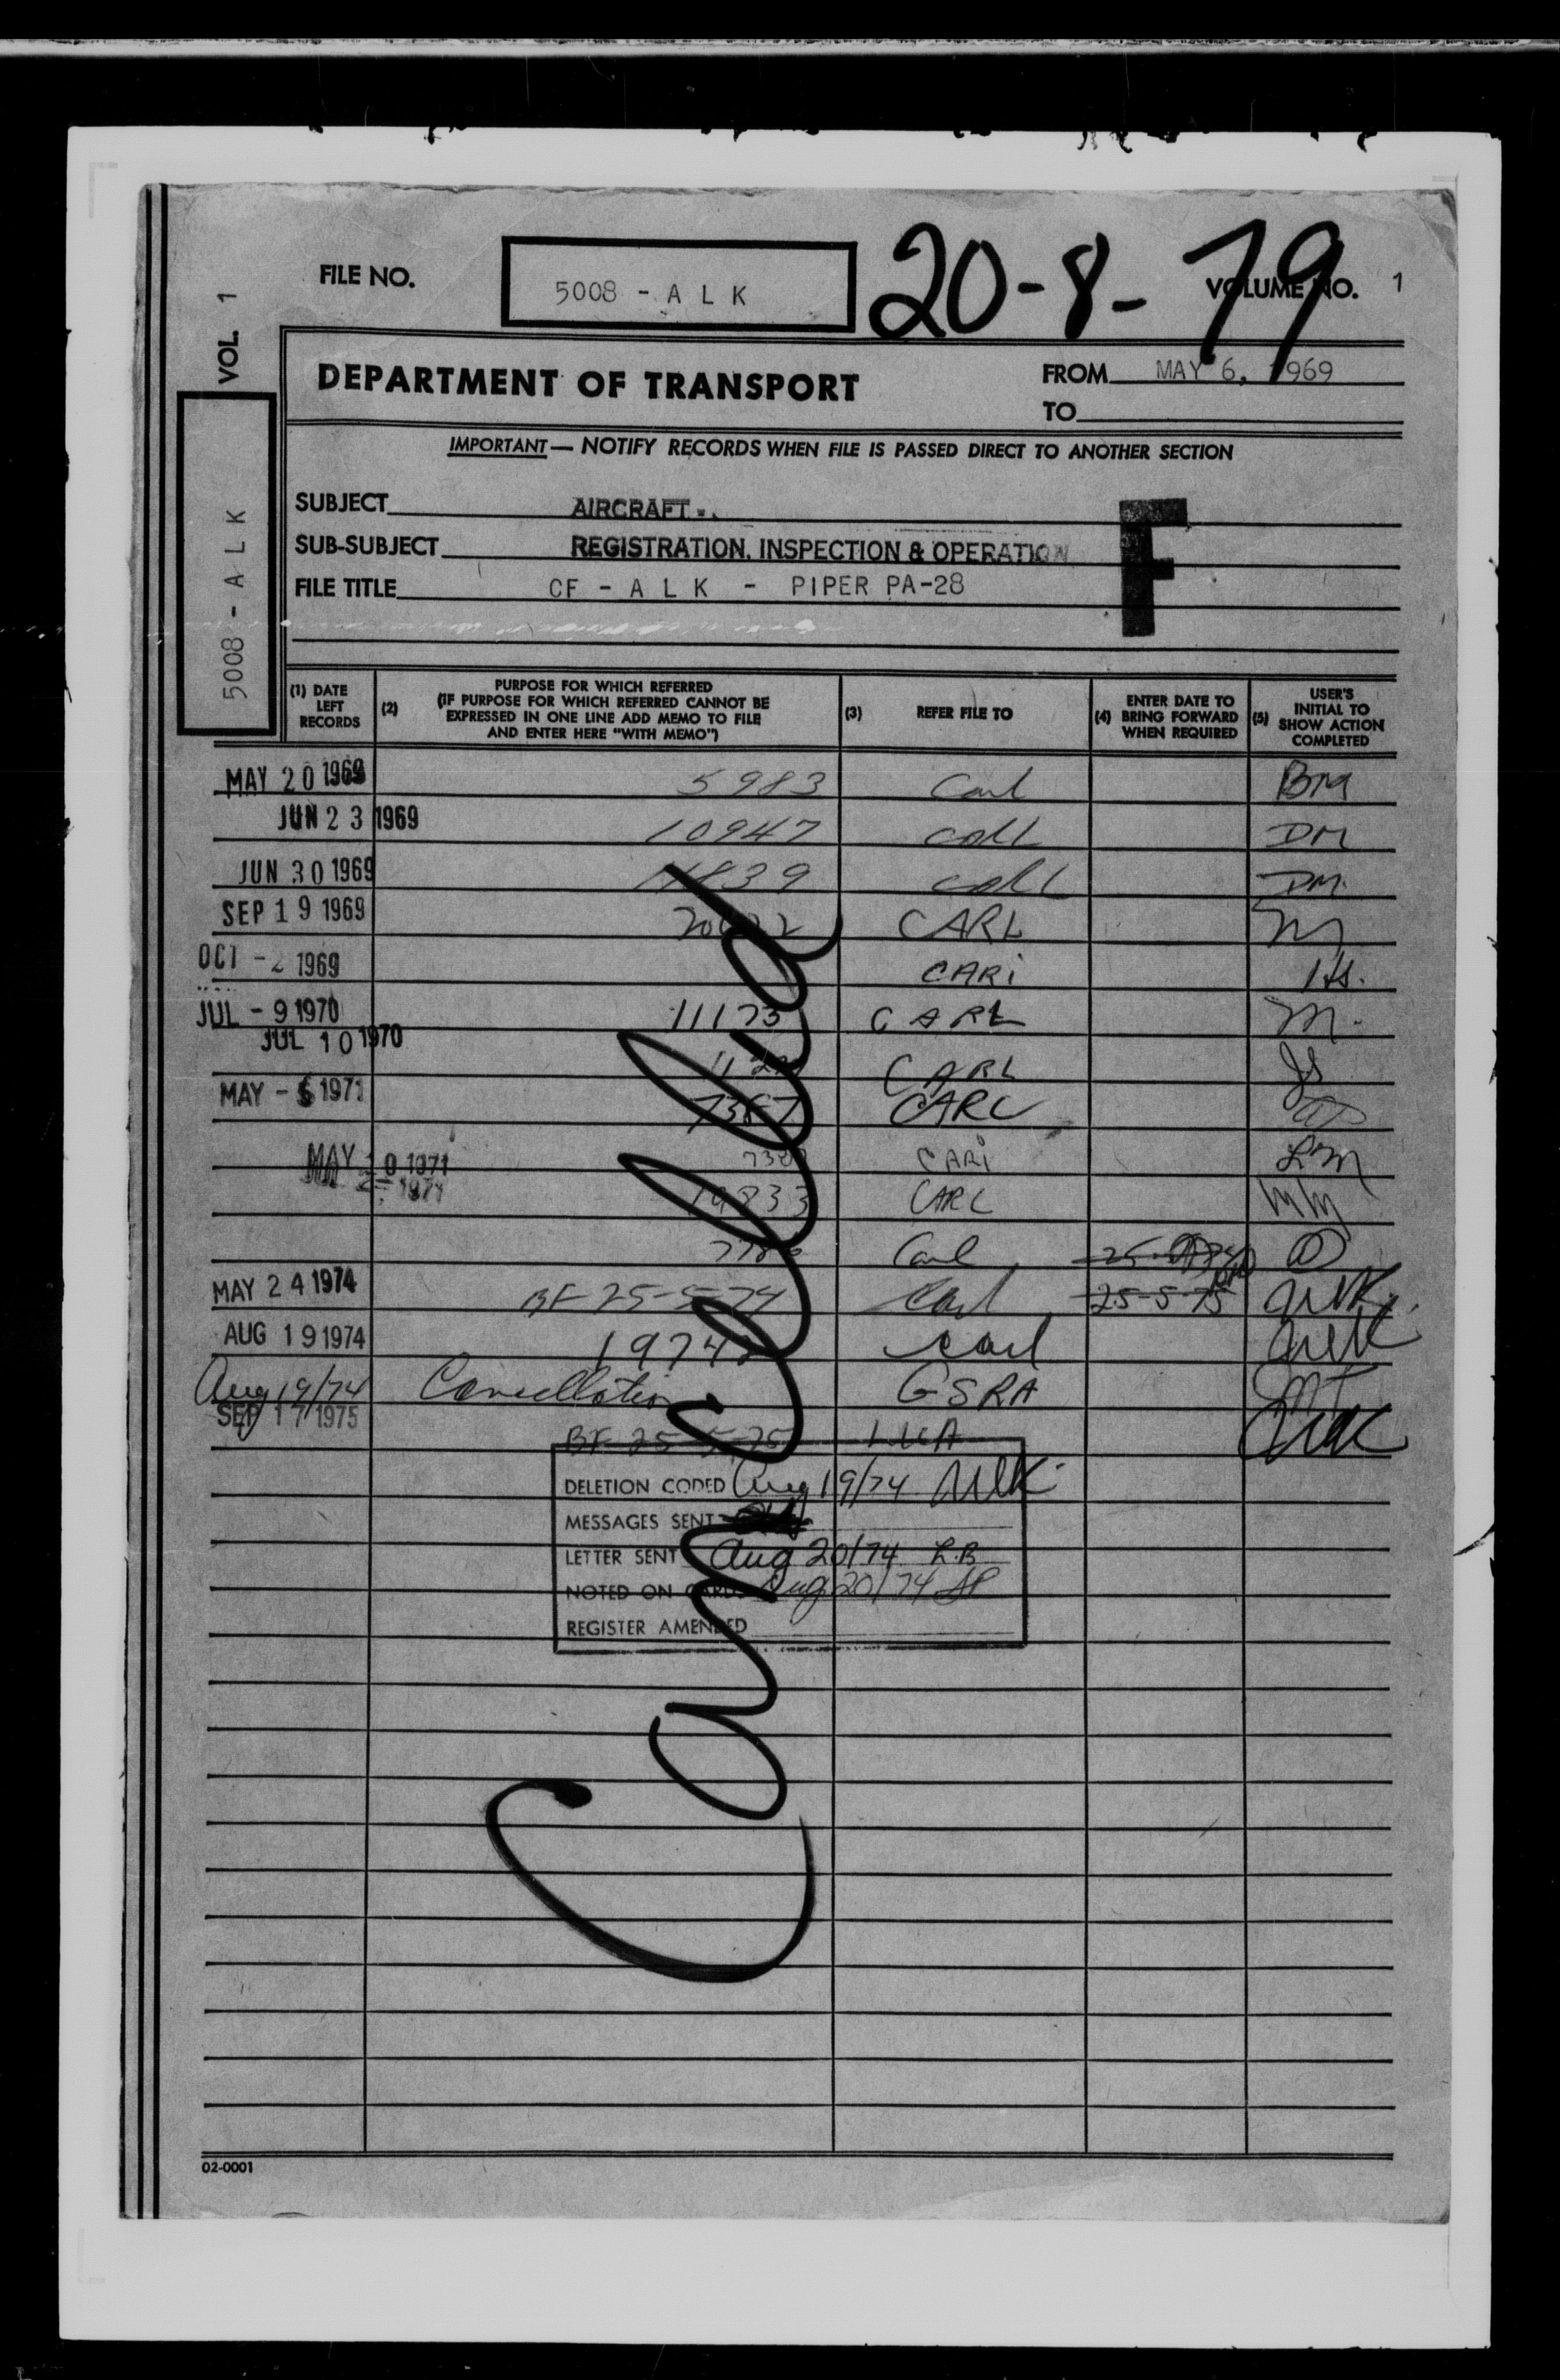 FILE NO.
5008 - A L K
20-8-79
VOLUME NO. 1
VOL. 1
5008 - A L K
DEPARTMENT OF TRANSPORT
FROM MAY 6, 1969
TO
IMPORTANT — NOTIFY RECORDS WHEN FILE IS PASSED DIRECT TO ANOTHER SECTION
SUBJECT AIRCRAFT -
SUB-SUBJECT REGISTRATION, INSPECTION & OPERATION
FILE TITLE CF - A L K - PIPER PA-28
F
(1) DATE LEFT RECORDS
(2) PURPOSE FOR WHICH REFERRED
(IF PURPOSE FOR WHICH REFERRED CANNOT BE
EXPRESSED IN ONE LINE ADD MEMO TO FILE
AND ENTER HERE "WITH MEMO")
(3) REFER FILE TO
(4) ENTER DATE TO BRING FORWARD WHEN REQUIRED
(5) USER'S INITIAL TO SHOW ACTION COMPLETED
MAY 20 1969 5983 Carl BM
JUN 23 1969 10947 Carl DM
JUN 30 1969 Carl DM
SEP 19 1969 CARL M
OCT - 2 1969 CARL
JUL - 9 1970 11173 CARL M.
JUL 10 1970 CARL JS
MAY - 5 1971 7387 CARL
MAY 10 1971 CARL LM
1971 CARL MM
Carl
MAY 24 1974 BF 25-5-74 Carl 25-5-75
AUG 19 1974 Carl
Aug 19/74 Cancellation GSRA MT
SEP 17 1975
BF 25-5-75
DELETION CODED Aug 19/74
MESSAGES SENT
LETTER SENT Aug 20/74 L.B
NOTED ON CARDS Aug 20/74
REGISTER AMENDED
Cancelled
02-0001